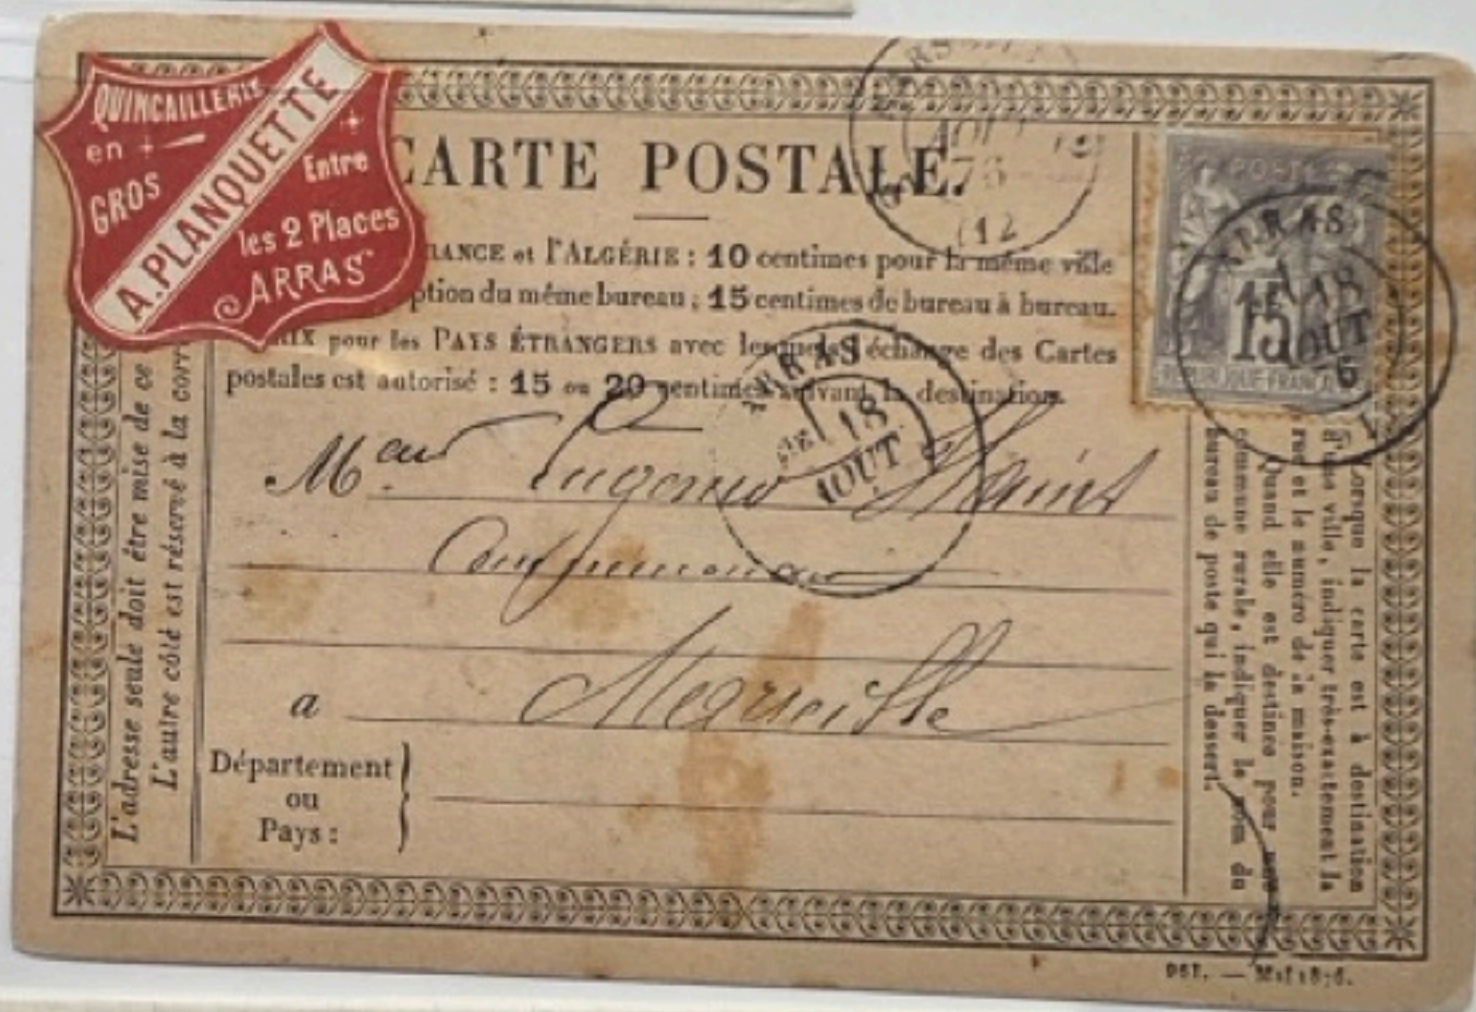 QUINCAILLERIE
en
GROS
A. PLANQUETTE
Entre
les 2 Places
ARRAS
CARTE POSTALE.
RANCE et l'ALGÉRIE : 10 centimes pour la même ville
ption du même bureau ; 15 centimes de bureau à bureau.
RIX pour les PAYS ÉTRANGERS avec lesquels l'échange des Cartes
postales est autorisé : 15 ou 20 centimes suivant la destination.
ARRAS
18
AOUT
ARRAS
18
AOUT
6
AOUT
76
(12
POSTES
15
REPUBLIQUE FRANCAISE
L'adresse seule doit être mise de ce
L'autre côté est réservé à la corr
Lorsque la carte est à destination
d'une ville, indiquer très-exactement la
rue et le numéro de la maison.
Quand elle est destinée pour une
commune rurale, indiquer le nom du
bureau de poste qui la dessert.
a Marseille
Département
ou
Pays :
961. — Mai 1876.